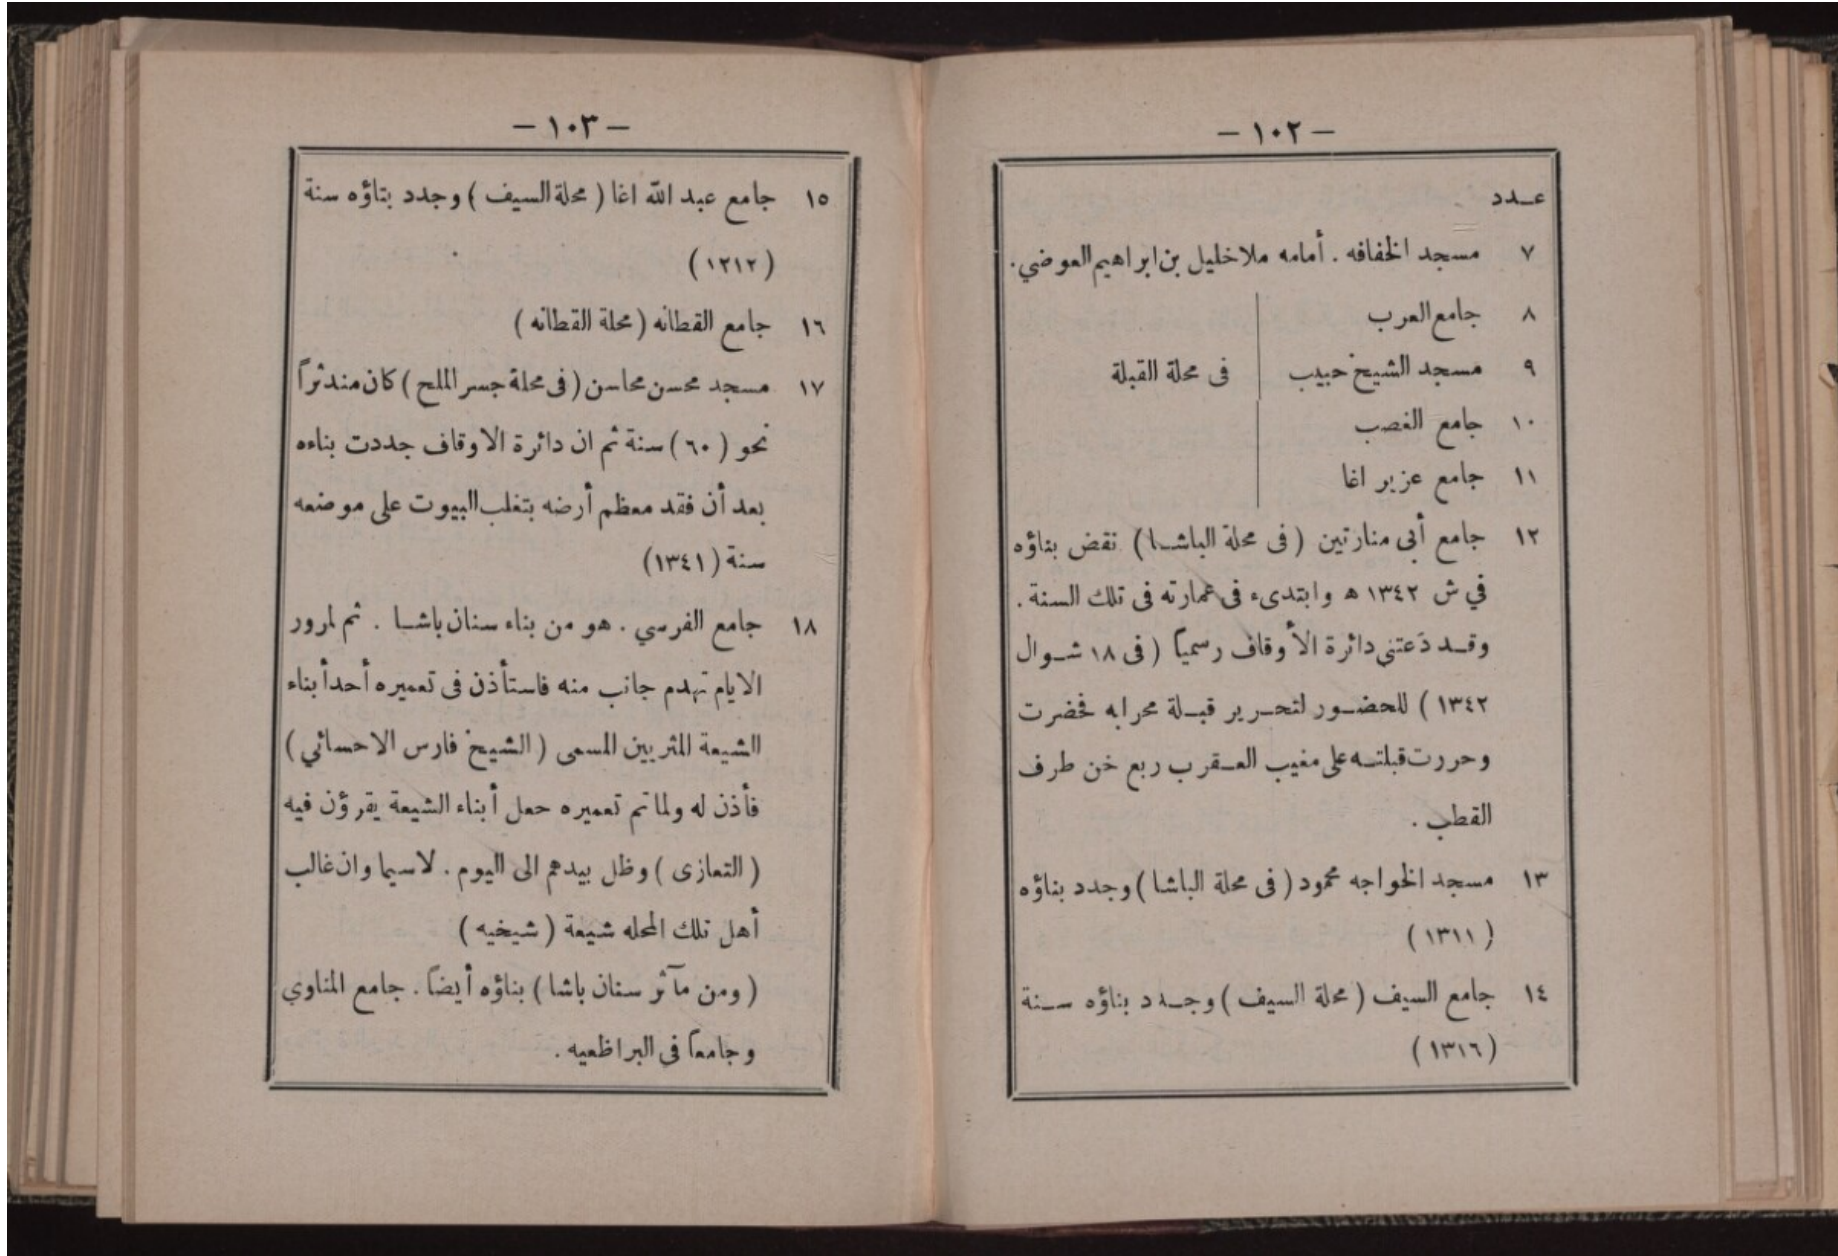 — ١٠٢ —
عـدد
٧ مسجد الخفافه . أمامه ملا خليل بن ابراهيم العوضي.
٨ جامع العرب
٩ مسجد الشيخ حبيب في محلة القبلة
١٠ جامع الغصب
١١ جامع عزير اغا
١٢ جامع أبى منارتين ( فى محلة الباشـا ) نقض بناؤه
في ش ١٣٤٢ ه وابتدىء فى عمارته فى تلك السنة .
وقـد دَعتني دائرة الأوقاف رسمياً ( فى ١٨ شـوال
١٣٤٢ ) للحضـور لتحـرير قبـلة محرابه فحضرت
وحررت قبلتـه على مغيب العـقرب ربع خن طرف
القطب .
١٣ مسجد الخواجه محمود ( فى محلة الباشا ) وجدد بناؤه
( ١٣١١ )
١٤ جامع السيف ( محلة السيف ) وجـدد بناؤه سـنة
( ١٣١٦ )
— ١٠٣ —
١٥ جامع عبد الله اغا ( محلة السيف ) وجدد بتاؤه سنة
( ١٢١٢ )
١٦ جامع القطانه ( محلة القطانه )
١٧ مسجد محسن محاسن ( فى محلة جسر الملح ) كان مندثراً
نحو ( ٦٠ ) سنة ثم ان دائرة الاوقاف جددت بناءه
بعد أن فقد معظم أرضه بتغلب البيوت على موضعه
سنة ( ١٣٤١ )
١٨ جامع الفرسي . هو من بناء سنان باشـا . ثم لمرور
الايام تهدم جانب منه فاستأذن فى تعميره أحد أبناء
الشيعة المثريين المسمى ( الشيخ فارس الاحسائي )
فأذن له ولما تم تعميره حعل أبناء الشيعة يقرؤن فيه
( التعازى ) وظل بيدهم الى اليوم . لاسيما وان غالب
أهل تلك المحله شيعة ( شيخيه )
( ومن مآثر سنان باشا ) بناؤه أيضاً . جامع المناوي
وجامعاً فى البراظعيه .